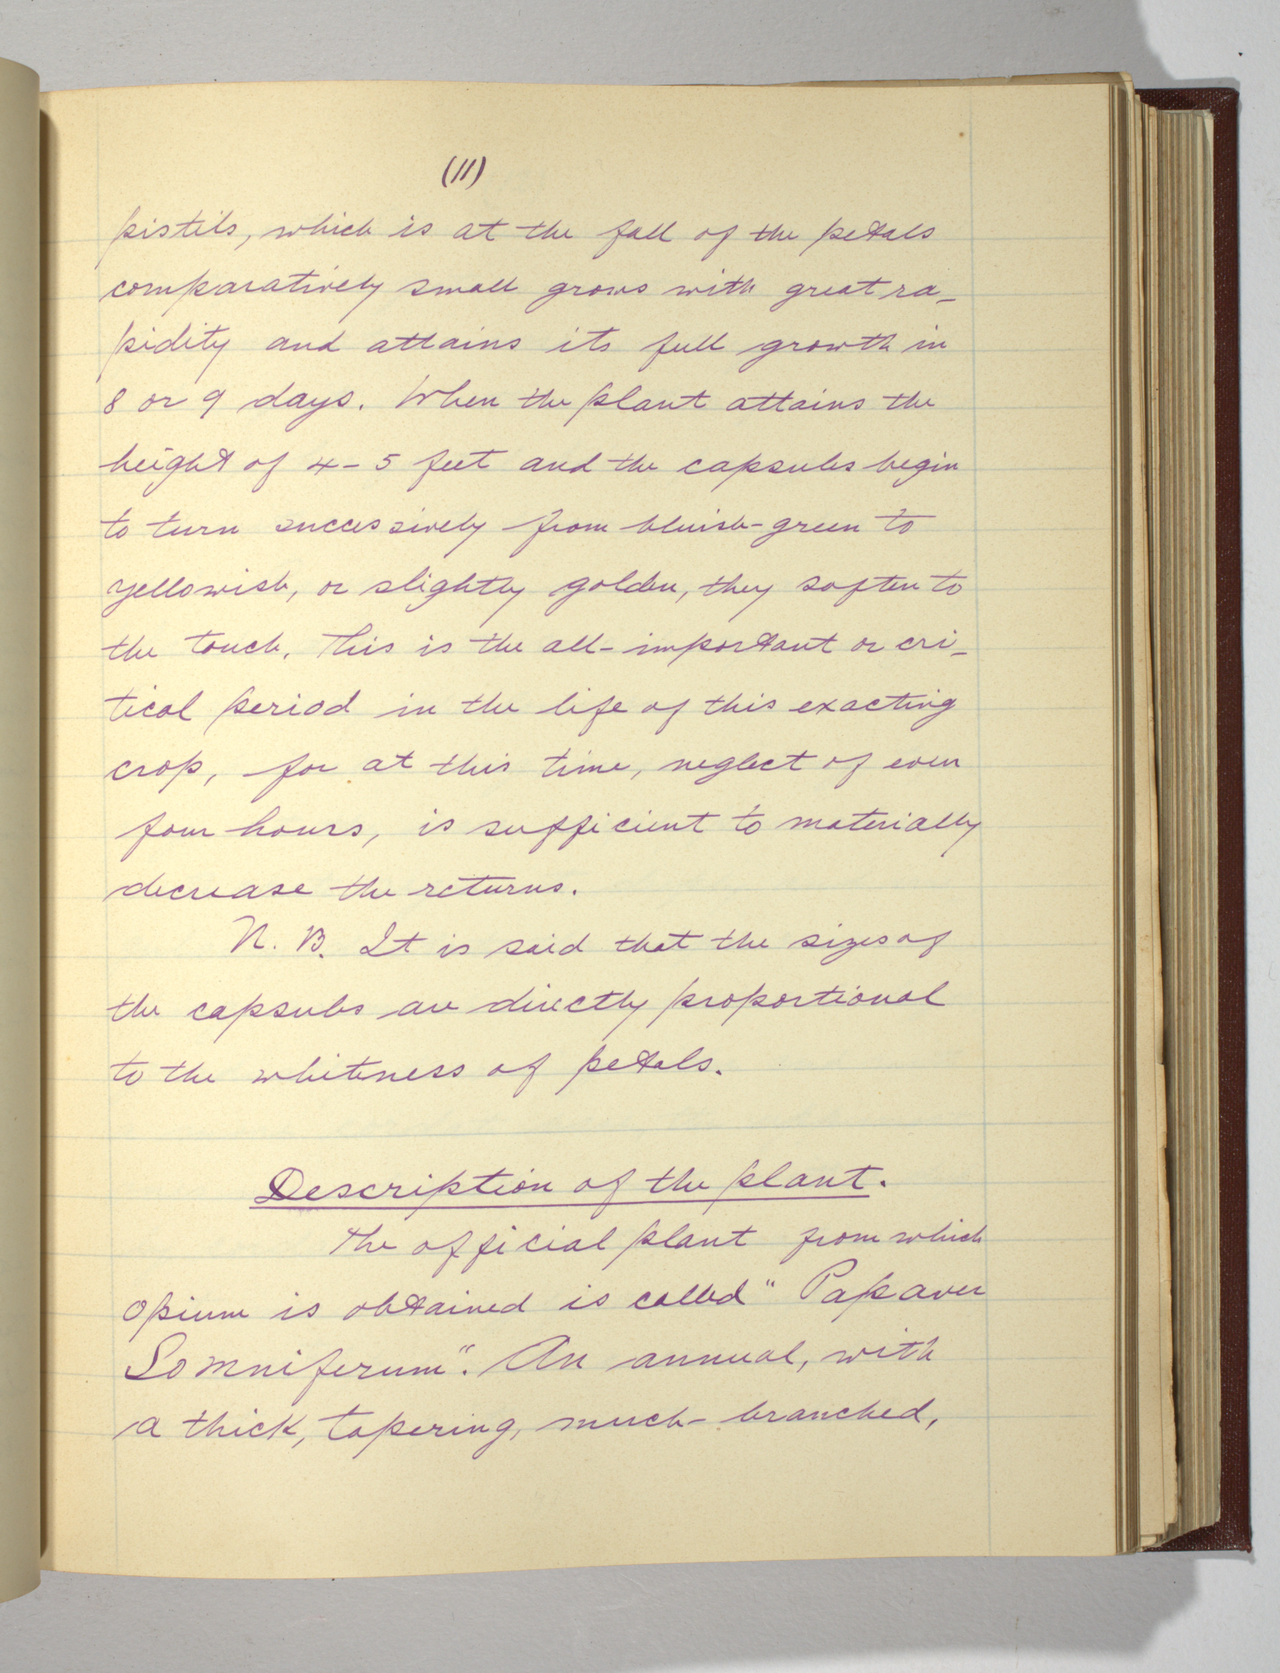 (11)
pistils, which is at the fall of the petals
comparatively small grows with great ra-
pidity and attains its full growth in
8 or 9 days. When the plant attains the
height of 4-5 feet and the capsules begin
to turn successively from bluish-green to
yellowish, or slightly golden, they soften to
the touch. This is the all-important or cri-
tical period in the life of this exacting
crop, for at this time, neglect of even
four hours, is sufficient to materially
decrease the returns.
N.B. It is said that the sizes of
the capsules are directly proportional
to the whiteness of petals.
Description of the plant.
The official plant from which
opium is obtained is called "Papaver
Somniferum". An annual, with
a thick, tapering, much-branched,